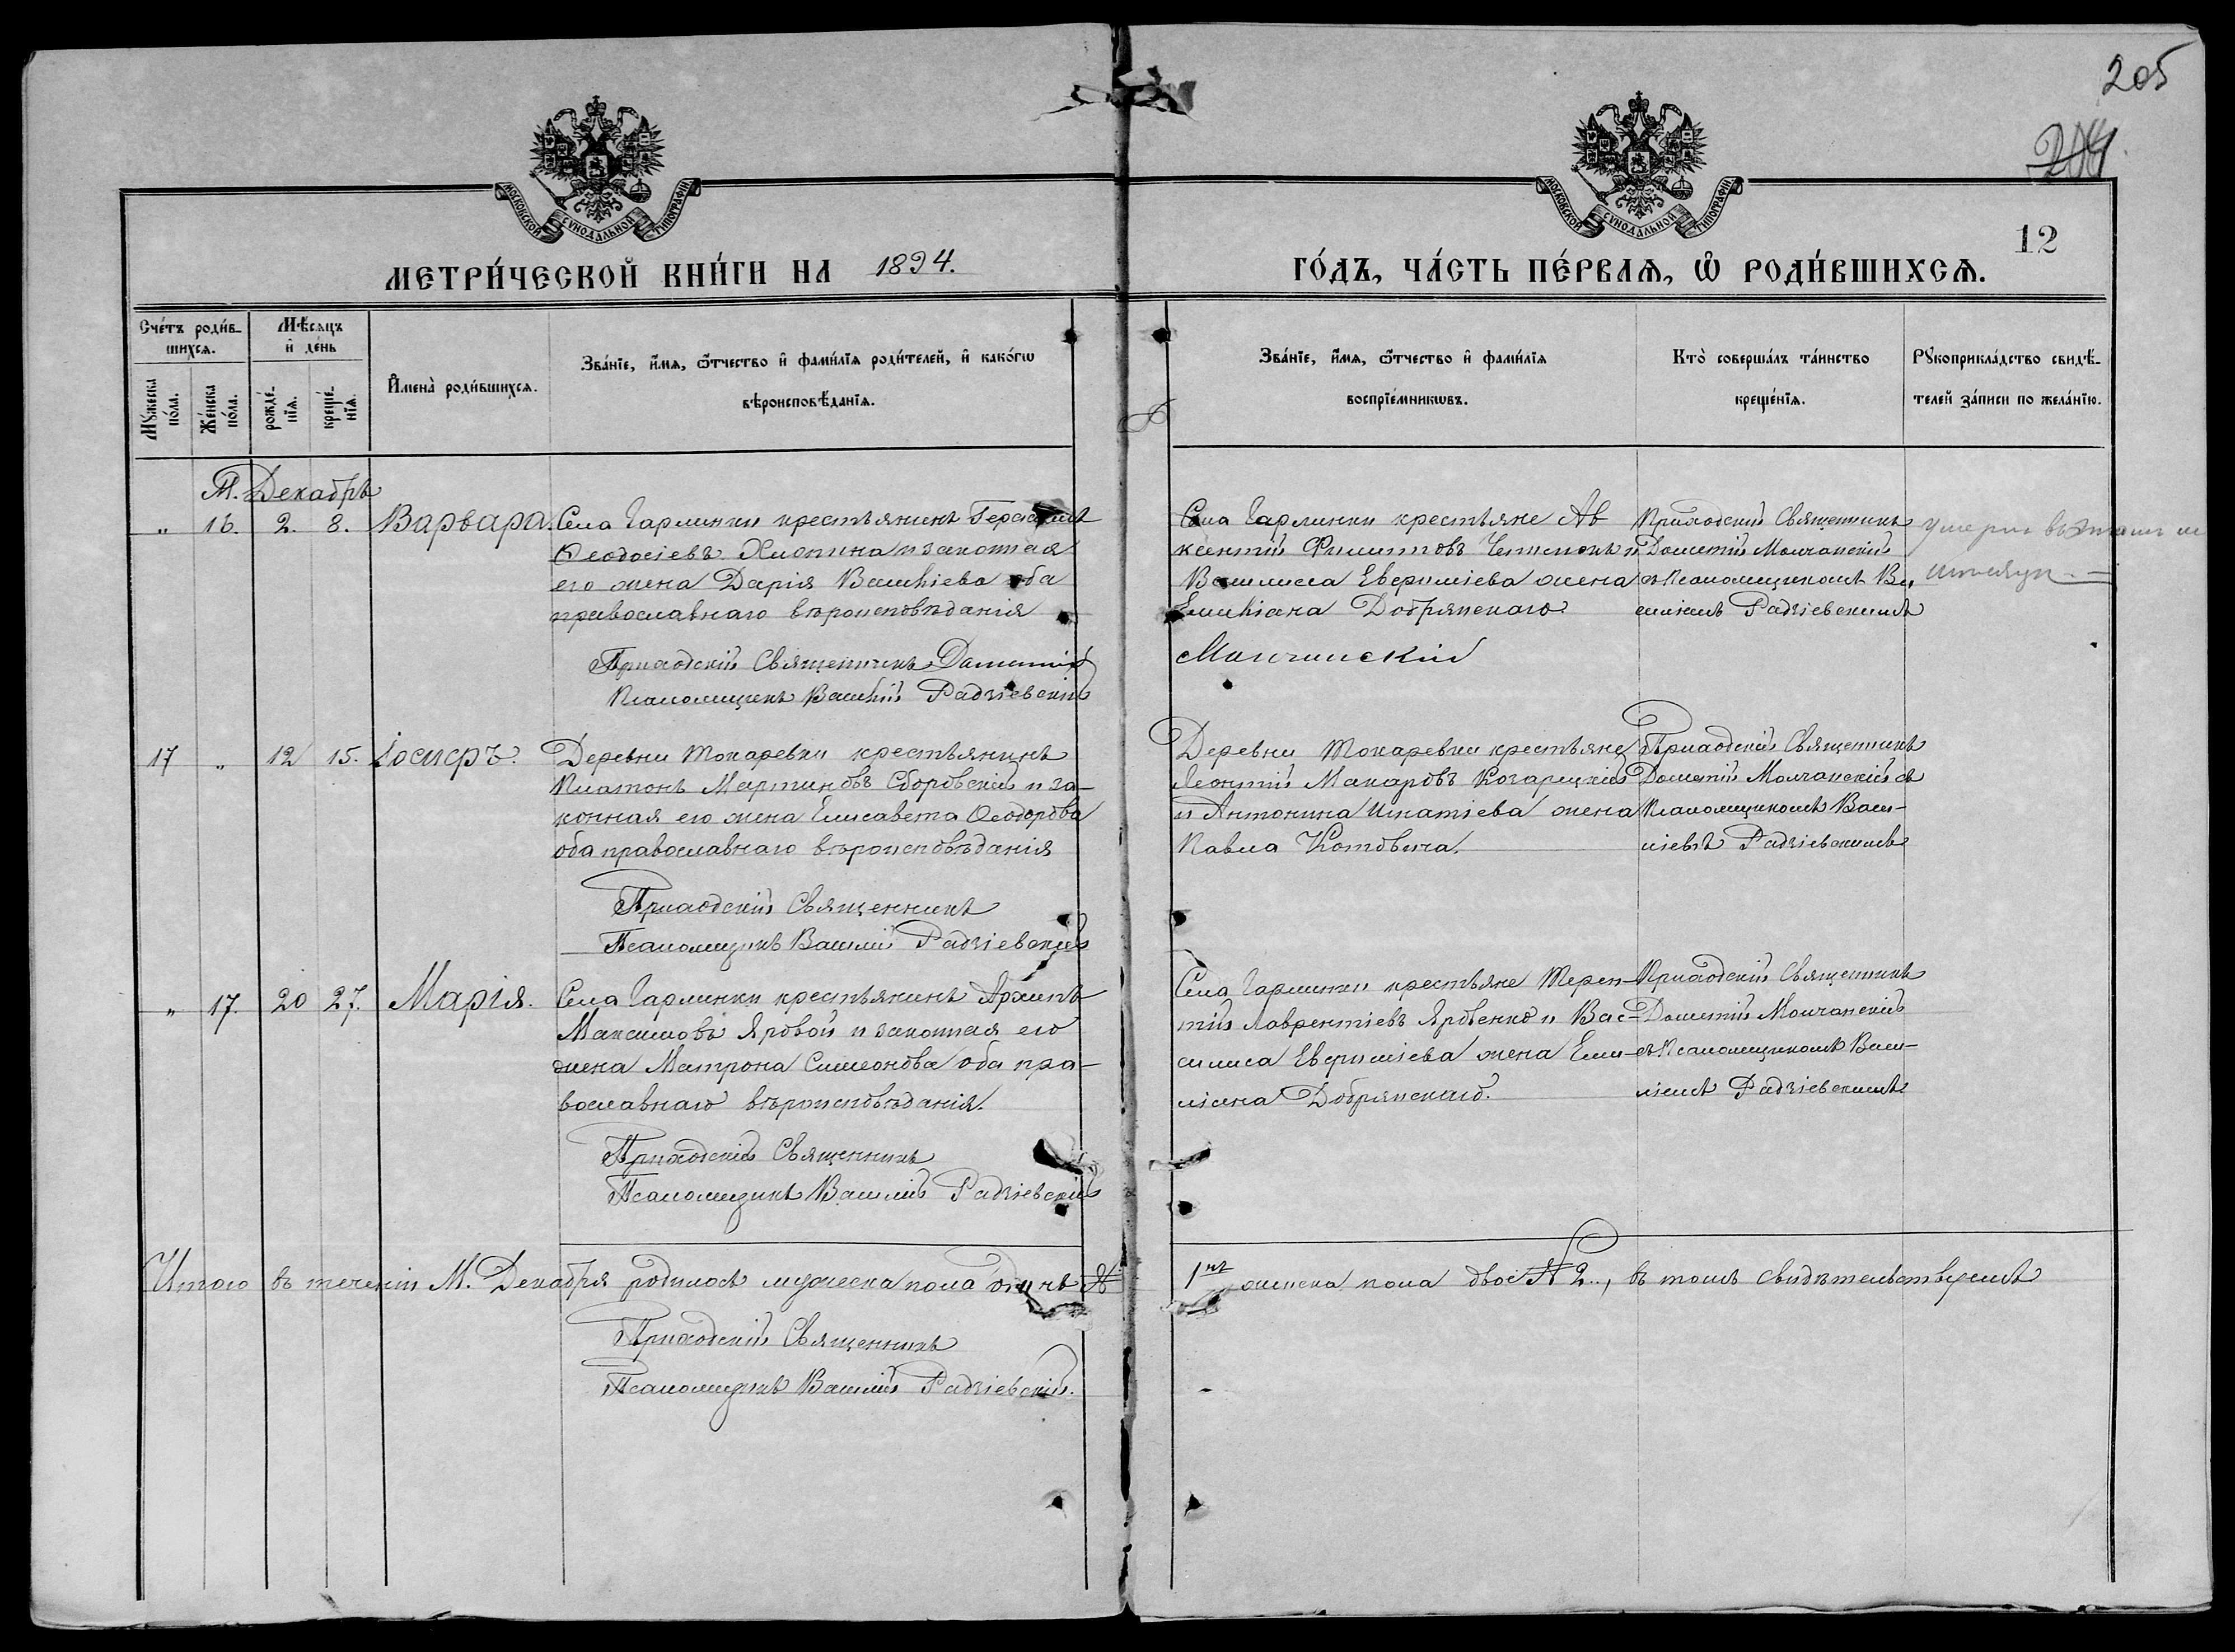 205
204
МОСКОВСКОЙ СѴНОДАЛЬНОЙ ТИПОГРАФІИ
МОСКОВСКОЙ СѴНОДАЛЬНОЙ ТИПОГРАФІИ
12
МЕТРИ́ЧЕСКОЙ КНИ́ГИ НА 1894.
ГО́ДЪ, ЧА́СТЬ ПЕ́РВАѦ, Ѡ҆ РОДИ́ВШИХСѦ.
Сче́тъ роди́в-
шихсѧ.
Мѣ́сѧцъ
и҆ де́нь
Мꙋ́жеска по́ла.
Же́нска по́ла.
рожде́-
нїѧ.
креще́-
нїѧ.
И҆мена̀ роди́вшихсѧ.
Зва́нїе, и҆́мѧ, ѻ҆́тчество и҆ фами́лїѧ роди́телей, и҆ како́гѡ
вѣроисповѣ́данїѧ.
Зва́нїе, и҆́мѧ, ѻ҆́тчество и҆ фами́лїѧ
воспрїе́мникѡвъ.
Кто̀ соверша́лъ та́инство
креще́нїѧ.
Рꙋкоприкла́дство свидѣ́-
телей за́писи по жела́нїю.
М. Декабрь
„ 16. 2. 8. Варвара. Села Гарлинки крестьянинъ Герасимъ
Ѳеодосіевъ и законная
его жена Дарія Василіева оба
православнаго вѣроисповѣданія
Приходскій Священникъ Дометій
Псаломщикъ Василій Радзіевскій
Села Гарлинки крестьяне Ав
ксентій Филипповъ и
Василиса Евфиміева жена
Емиліана Добрянскаго
Молчанскій
Приходскій Священникъ
Дометій Молчанскій
съ Псаломщикомъ Ва-
силіемъ Радзіевскимъ
17 „ 12 15. Іосифъ. Деревни Токаревки крестьянинъ
Платонъ Мартиновъ Сборовскій и за-
конная его жена Елисавета Ѳеодорова
оба православнаго вѣроисповѣданія
Приходскій Священникъ
Псаломщикъ Василій Радзіевскій
Деревни Токаревки крестьяне
Леонтій Макаровъ Когарецкій
и Антонина Игнатіева жена
Павла Котовича.
Приходскій Священникъ
Дометій Молчанскій съ
Псаломщикомъ Васи-
ліемъ Радзіевскимъ
„ 17. 20 27. Марія. Села Гарлинки крестьянинъ Архипъ
Максимовъ Яровой и законная его
жена Матрона Симеонова оба пра-
вославнаго вѣроисповѣданія.
Приходскій Священникъ
Псаломщикъ Василій Радзіевскій
Села Гарлинки крестьяне Терен-
тій Лаврентіевъ Яровенко и Вас-
силиса Евфиміева жена Еми-
ліана Добрянскаго.
Приходскій Священникъ
Дометій Молчанскій
съ Псаломщикомъ Васи-
ліемъ Радзіевскимъ
Итого въ теченіи М. Декабря родилось мужеска пола одинъ №
1нъ женска пола двое № 2., въ томъ свидѣтельствуемъ
Приходскій Священникъ
Псаломщикъ Василій Радзіевскій.